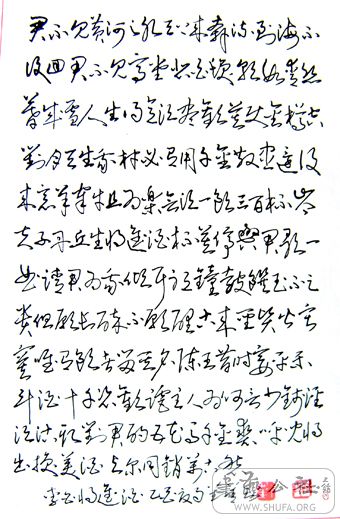 君不见黄河之水天上来奔流到海不
復回君不见高堂悲白发朝如青丝
暮成雪人生得意须尽欢莫使金樽空
對月天生我材必有用千金散尽还復
来烹羊宰牛且为乐会须一饮三百杯岑
夫子丹丘生将进酒杯莫停與君歌一
曲请君为我倾耳听钟鼓馔玉不足
贵但愿长醉不愿醒古来圣贤皆寂
寞唯有饮者留其名陈王昔时宴平乐
斗酒十千恣欢谑主人为何言少钱径
须沽取對君酌五花马千金裘呼儿将
出换美酒与尔同销万古愁
李白将进酒
书法公社
WWW.SHUFA.ORG